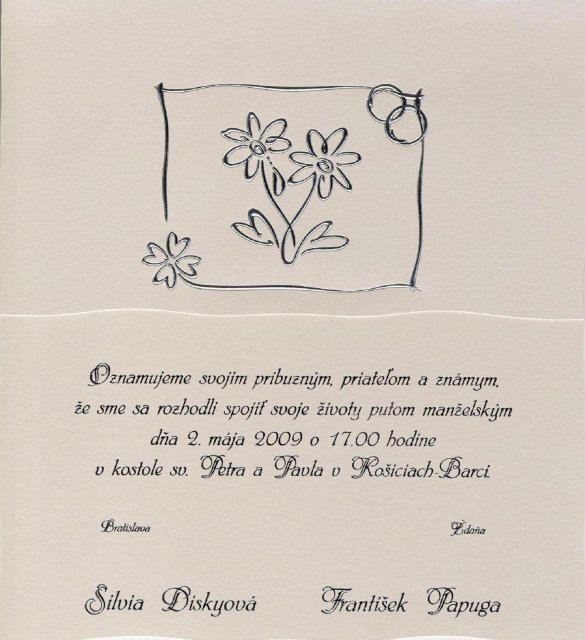 Oznamujeme svojim príbuzným, priateľom a známym,
že sme sa rozhodli spojiť svoje životy putom manželským
dňa 2. mája 2009 o 17.00 hodine
v kostole sv. Petra a Pavla v Košiciach-Barci.
Bratislava
Ždaňa
Silvia Diskyová
František Papuga